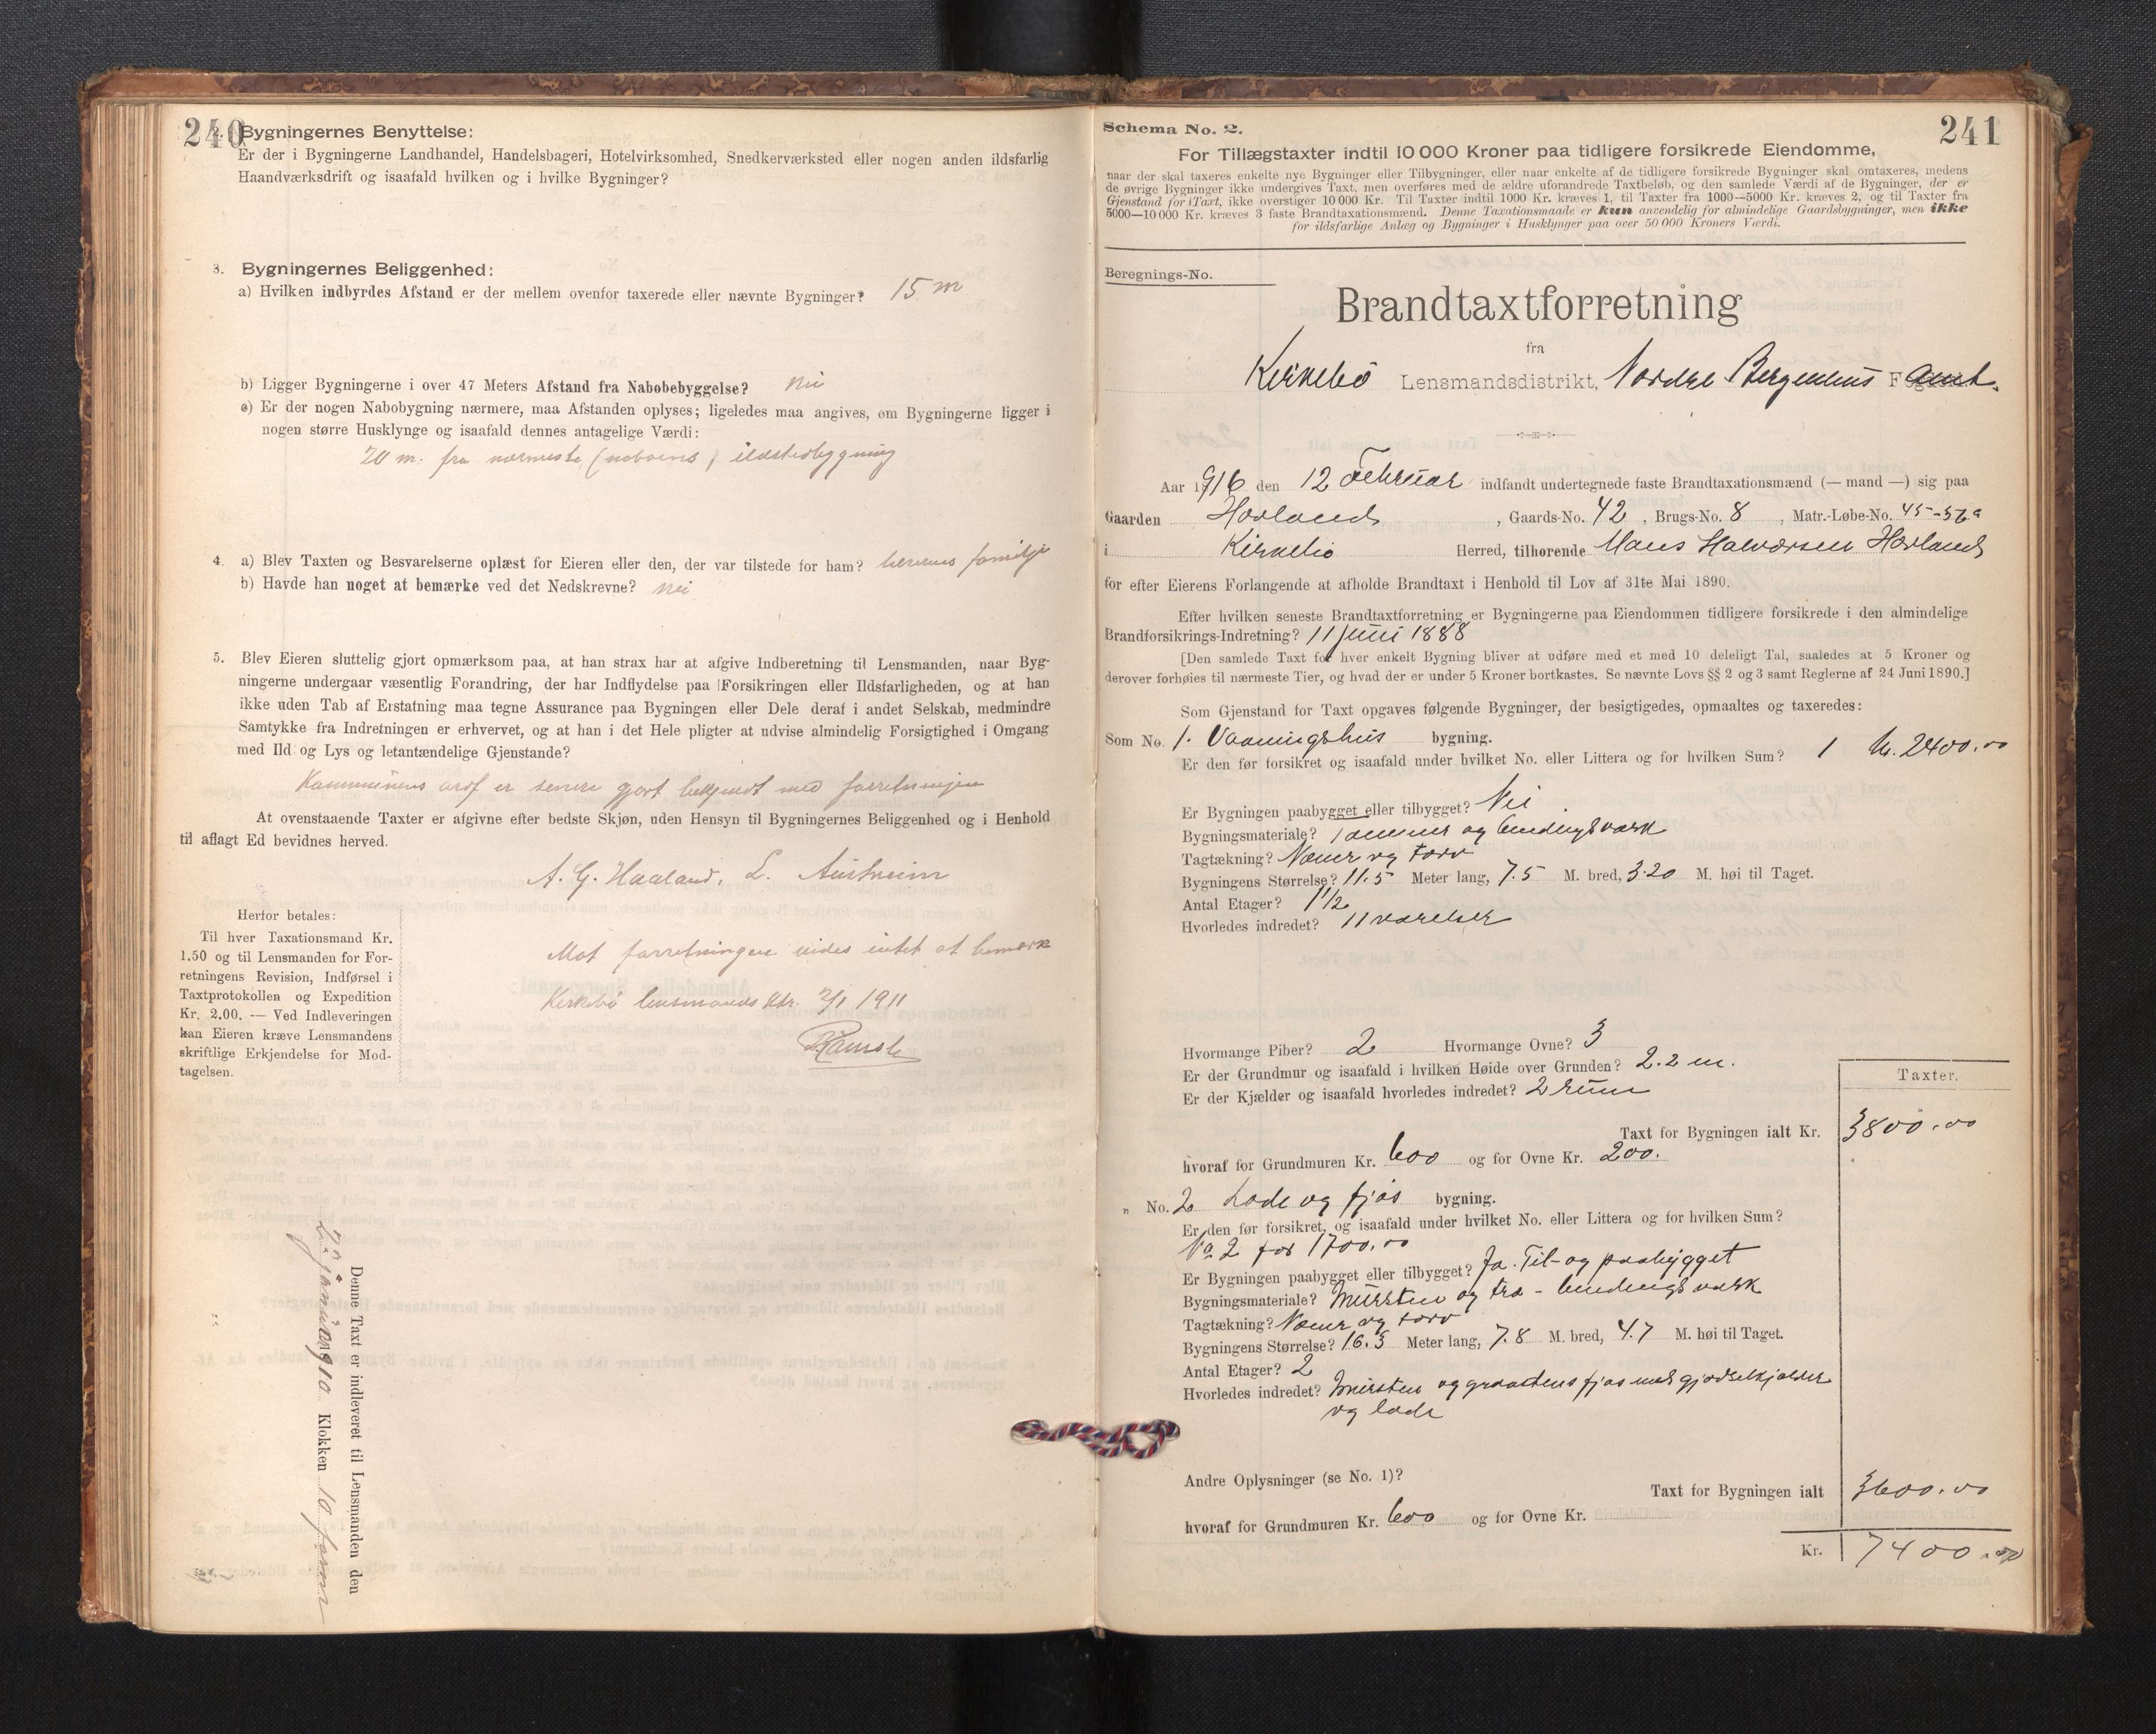 240
2. Bygningernes Benyttelse:
Er der i Bygningerne Landhandel, Handelsbageri, Hotelvirksomhed, Snedkerværksted eller nogen anden ildsfarlig
Haandværksdrift og isaafald hvilken og i hvilke Bygninger?
3. Bygningernes Beliggenhed:
a) Hvilken indbyrdes Afstand er der mellem ovenfor taxerede eller nævnte Bygninger? 15 m
b) Ligger Bygningerne i over 47 Meters Afstand fra Nabobebyggelse? Nei
c) Er der nogen Nabobygning nærmere, maa Afstanden oplyses; ligeledes maa angives, om Bygningerne ligger i
nogen større Husklynge og isaafald dennes antagelige Værdi:
20 m. fra nærmeste (naboens) ildstedbygning
4. a) Blev Taxten og Besvarelserne oplæst for Eieren eller den, der var tilstede for ham? familje
b) Havde han noget at bemærke ved det Nedskrevne? Nei
5. Blev Eieren sluttelig gjort opmærksom paa, at han strax har at afgive Indberetning til Lensmanden, naar Byg-
ningerne undergaar væsentlig Forandring, der har Indflydelse paa Forsikringen eller Ildsfarligheden, og at han
ikke uden Tab af Erstatning maa tegne Assurance paa Bygningen eller Dele deraf i andet Selskab, medmindre
Samtykke fra Indretningen er erhvervet, og at han i det Hele pligter at udvise almindelig Forsigtighed i Omgang
med Ild og Lys og letantændelige Gjenstande?
Kommunens ordf er senere gjort bekjendt med forretningen
At ovenstaaende Taxter er afgivne efter bedste Skjøn, uden Hensyn til Bygningernes Beliggenhed og i Henhold
til aflagt Ed bevidnes herved.
A. G. Haaland. L. Austreim
Herfor betales:
Til hver Taxationsmand Kr.
1.50 og til Lensmanden for For-
retningens Revision, Indførsel i
Taxtprotokollen og Expedition
Kr. 2.00. — Ved Indleveringen
kan Eieren kræve Lensmandens
skriftlige Erkjendelse for Mod-
tagelsen.
Mot forretningen vides intet at bemærk
Kirkebø lensmands ktr. 2/1 1911
Denne Taxt er indleveret til Lensmanden den
januar 1910 Klokken 10 form
241
Schema No. 2.
For Tillægstaxter indtil 10 000 Kroner paa tidligere forsikrede Eiendomme,
naar der skal taxeres enkelte nye Bygninger eller Tilbygninger, eller naar enkelte af de tidligere forsikrede Bygninger skal omtaxeres, medens
de øvrige Bygninger ikke undergives Taxt, men overføres med de ældre uforandrede Taxtbeløb, og den samlede Værdi af de Bygninger, der er
Gjenstand for Taxt, ikke overstiger 10 000 Kr. Til Taxter indtil 1000 Kr. kræves 1, til Taxter fra 1000—5000 Kr. kræves 2, og til Taxter fra
5000—10 000 Kr. kræves 3 faste Brandtaxationsmænd. Denne Taxationsmaade er kun anvendelig for almindelige Gaardsbygninger, men ikke
for ildsfarlige Anlæg og Bygninger i Husklynger paa over 50 000 Kroners Værdi.
Beregnings-No.
Brandtaxtforretning
fra
Kirkebø Lensmandsdistrikt, Nordre Bergenhus Amt.
Aar 1916 den 12 Februar indfandt undertegnede faste Brandtaxationsmænd (— mand —) sig paa
Gaarden Hovland, Gaards-No. 42, Brugs-No. 8, Matr.-Løbe-No. 45-56a
i Kirkebø Herred, tilhørende Mons Halvorsen Hovland
for efter Eierens Forlangende at afholde Brandtaxt i Henhold til Lov af 31te Mai 1890.
Efter hvilken seneste Brandtaxtforretning er Bygningerne paa Eiendommen tidligere forsikrede i den almindelige
Brandforsikrings-Indretning? 11 Juni 1888
[Den samlede Taxt for hver enkelt Bygning bliver at udføre med et med 10 deleligt Tal, saaledes at 5 Kroner og
derover forhøies til nærmeste Tier, og hvad der er under 5 Kroner bortkastes. Se nævnte Lovs §§ 2 og 3 samt Reglerne af 24 Juni 1890.]
Som Gjenstand for Taxt opgaves følgende Bygninger, der besigtigedes, opmaaltes og taxeredes:
Som No. 1. Vaaningshus bygning.
Er den før forsikret og isaafald under hvilket No. eller Littera og for hvilken Sum? 1 kr. 2400.00
Er Bygningen paabygget eller tilbygget? Nei
Bygningsmateriale? Tømmer og bindingsværk
Tagtækning? Næver og torv
Bygningens Størrelse? 11.5 Meter lang, 7.5 M. bred, 3.20 M. høi til Taget.
Antal Etager? 1 1/2
Hvorledes indredet? 11 værelser
Hvormange Piber? 2 Hvormange Ovne? 3
Er der Grundmur og isaafald i hvilken Høide over Grunden? 2.2 m.
Er der Kjælder og isaafald hvorledes indredet? 2 rum
Taxter.
Taxt for Bygningen ialt Kr. 3800.00
hvoraf for Grundmuren Kr. 600 og for Ovne Kr. 200.
" No. 2 Lade og fjøs bygning.
Er den før forsikret, og isaafald under hvilket No. eller Littera og for hvilken Sum?
No 2 for 1700.00
Er Bygningen paabygget eller tilbygget? Ja. Til- og paabygget
Bygningsmateriale? Mursten og træ - bindingsværk
Tagtækning? Næver og torv
Bygningens Størrelse? 16.3 Meter lang, 7.8 M. bred, 4.7 M. høi til Taget.
Antal Etager? 2
Hvorledes indredet? Mursten og graastens fjøs med gjødselkjælder
og lade
Andre Oplysninger (se No. 1)?
Taxt for Bygningen ialt 3600.00
hvoraf for Grundmuren Kr. 600 og for Ovne Kr.
Kr. 7400.00